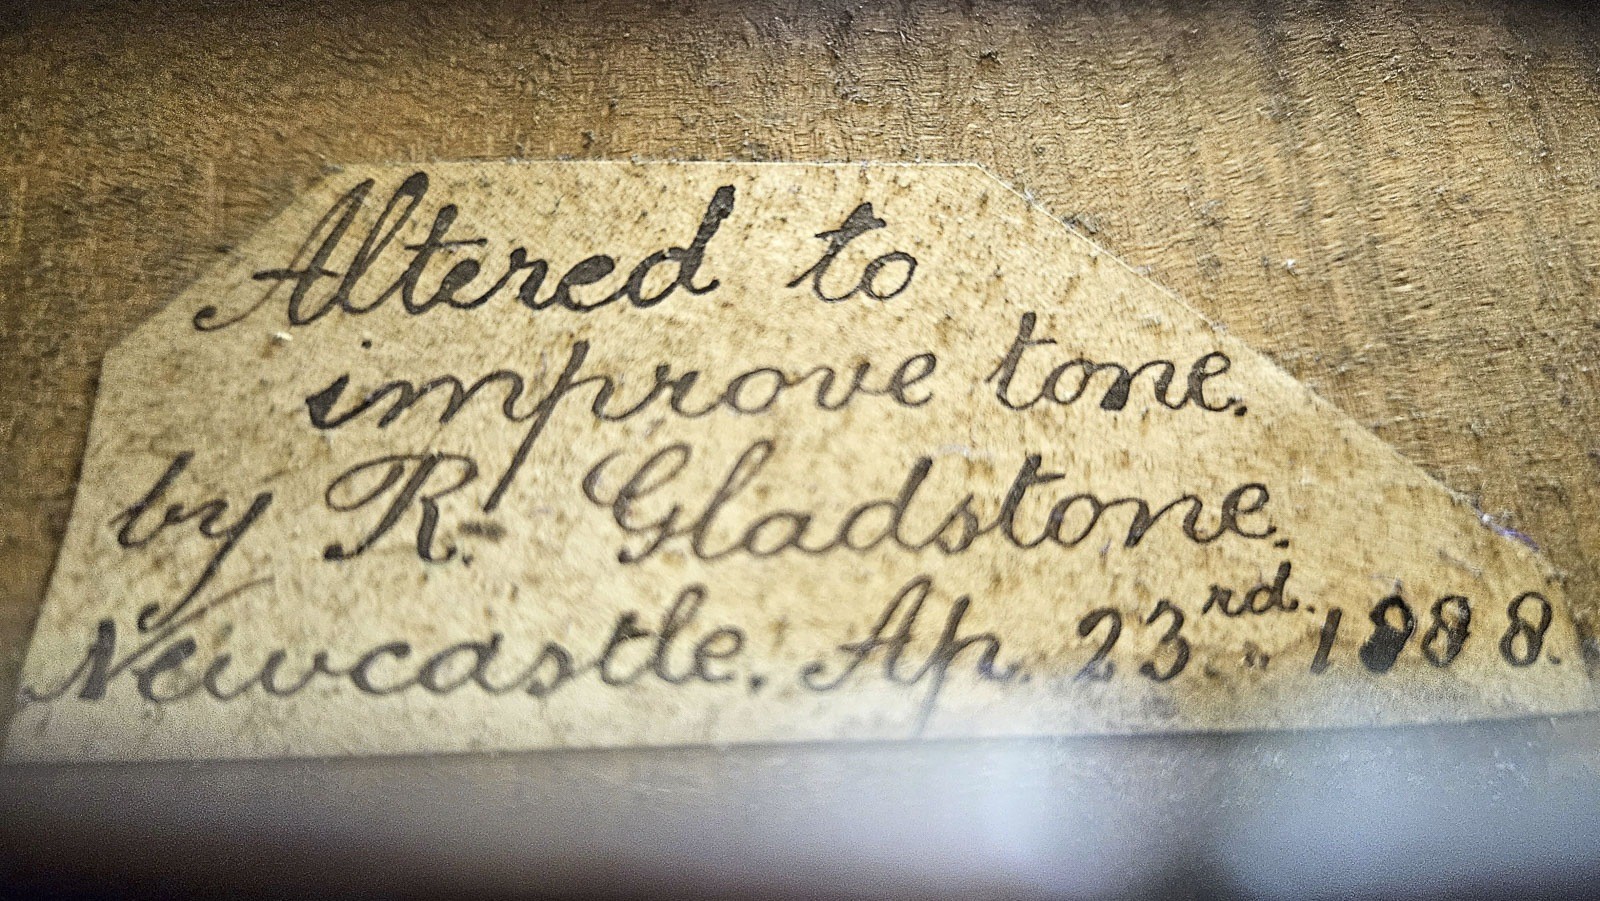 Altered to
improve tone.
by R. Gladstone.
Newcastle. Ap. 23rd. 1888.